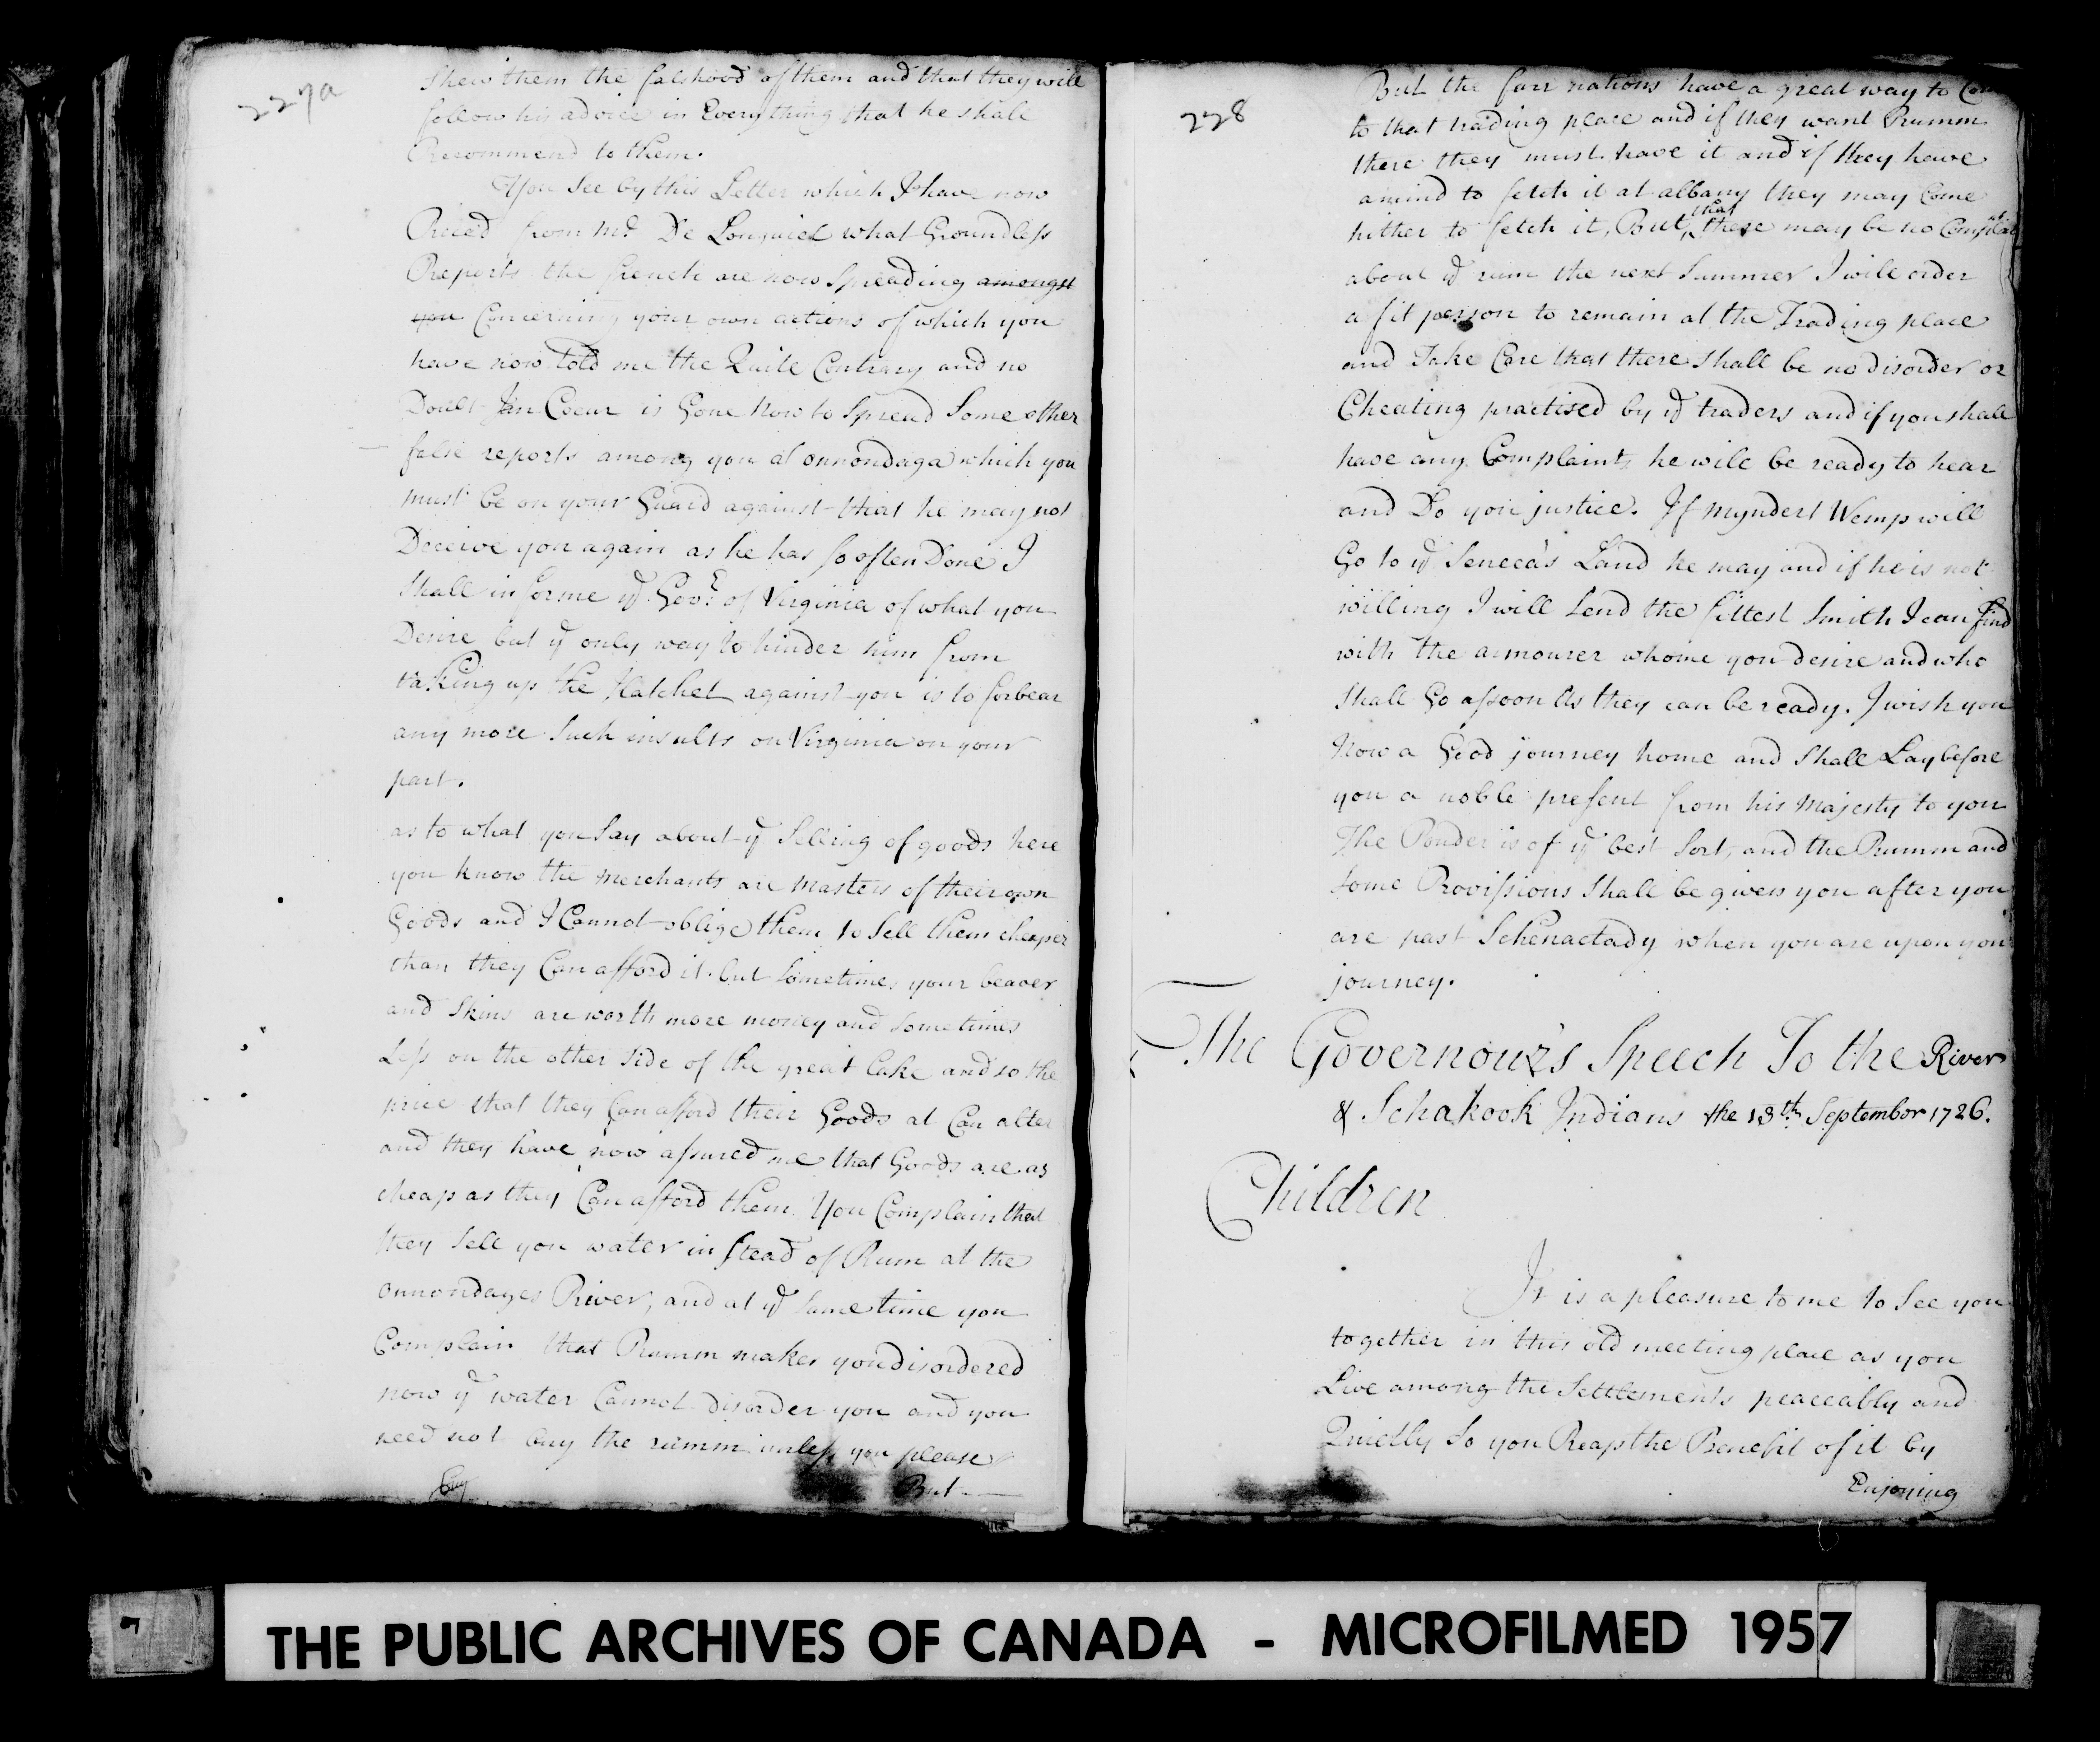 227a
Shew them the falshood of them and that they will
follow his advice in Every thing that he shall
Recommend to them.
You See by this Letter which I have now
Reced from Mr De Longuiel what Groundless
Reports the french are now Spreading amongst
you Concerning your own actions of which you
have now told me the Quite Contrary and no
Doubt Jan Coeur is Gone Now to Spread Some other
false reports among you at onnondaga which you
must be on your Guard against that he may not
Deceive you again as he has so often Done I
Shall informe ye Govr. of Virginia of what you
Desire but ye only way to hinder him from
taking up the Hatchet against you is to forbear
any more Such insults on Virginia on your
part.
as to what you Say about ye Selling of goods here
you know the Merchants are Masters of their own
Goods and I Cannot oblige them to Sell them cheaper
than they Can afford it but Sometimes your beaver
and Skins are worth more money and Sometimes
Less on the other Side of the great Lake and so the
price that they Can afford their Goods at Can alter
and they have now assured me that Goods are as
cheap as they Can afford them. You Complain that
they Sell you water in Stead of Rum at the
onnondages River, and at ye Same time you
Complain that Rumm makes you disordered
now ye water Cannot disorder you and you
need not buy the rumm unless you please
buy But
228
But the farr nations have a great way to Come
to that trading place and if they want Rumm
there they must have it and if they have
a mind to fetch it at albany they may Come
hither to fetch it, But that there may be no Complat
about ye rum the next Summer I will order
a fit person to remain at the Trading place
and Take Care that there Shall be no disorder or
Cheating practised by ye traders and if you shall
have any Complaint he will be ready to hear
and Do you justice. If myndert Wemp will
Go to ye Seneca's Land he may and if he is not
willing I will Send the fittest Smith I can find
with the armourer whome you desire and who
Shall Go assoon As they can be ready. I wish you
Now a Good journey home and Shall Lay before
you a noble present from his Majesty to you
The Pouder is of ye best Sort, and the Rumm and
Some Provissions Shall be given you after you
are past Schenactady when you are upon your
journey.
The Governour's Speech To the River
& Schakook Indians the 13th September 1726.
Children
It is a pleasure to me to See you
together in this old meeting place as you
Live among the Settlements peaceably and
Quietly So you Reap the Benefit of it by
Enjoying
THE PUBLIC ARCHIVES OF CANADA - MICROFILMED 1957